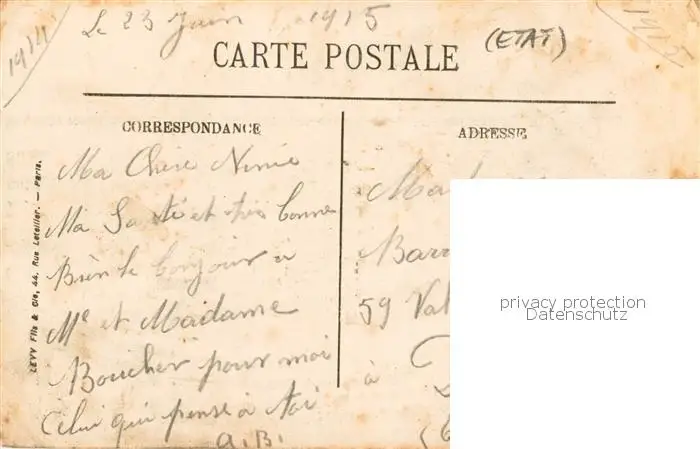 1914
Le 23 Juin 1915
(ETAT)
1915
CARTE POSTALE
CORRESPONDANCE
ADRESSE
Ma Chère Ninie
Ma Santé et très bonne
Bien le bonjour à
Mr et Madame
Boucher pour moi
Celui qui pense à toi
A.B.
Ma
Barr
59 Val
à
LEVY Fils & Cie, 44, Rue Letellier. — Paris.
privacy protection
Datenschutz